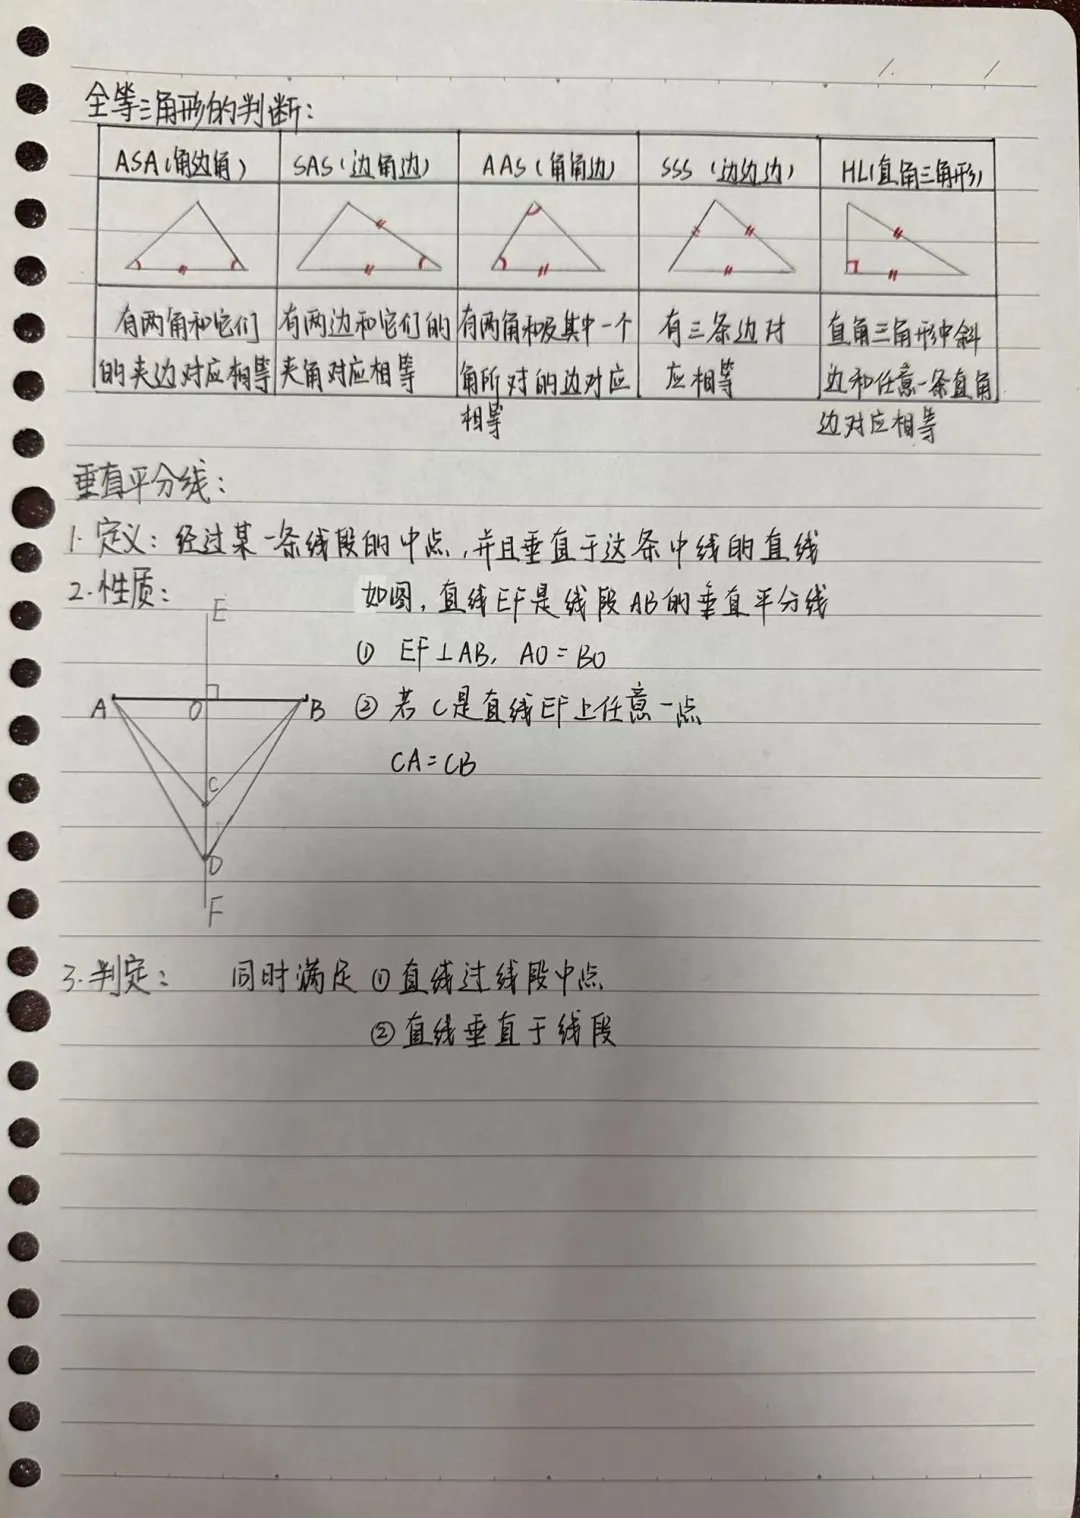 全等三角形的判断:
ASA(角边角) SAS(边角边) AAS(角角边) SSS(边边边) HL(直角三角形)
有两角和它们 有两边和它们的 有两角和及其中一个 有三条边对 直角三角形中斜
的夹边对应相等 夹角对应相等 角所对的边对应 应相等 边和任意一条直角
相等 边对应相等
垂直平分线:
1. 定义: 经过某一条线段的中点,并且垂直于这条中线的直线
2. 性质: 如图, 直线EF是线段AB的垂直平分线
E
① EF⊥AB, AO=BO
A O B ② 若C是直线EF上任意一点
CA=CB
C
D
F
3. 判定: 同时满足①直线过线段中点
②直线垂直于线段